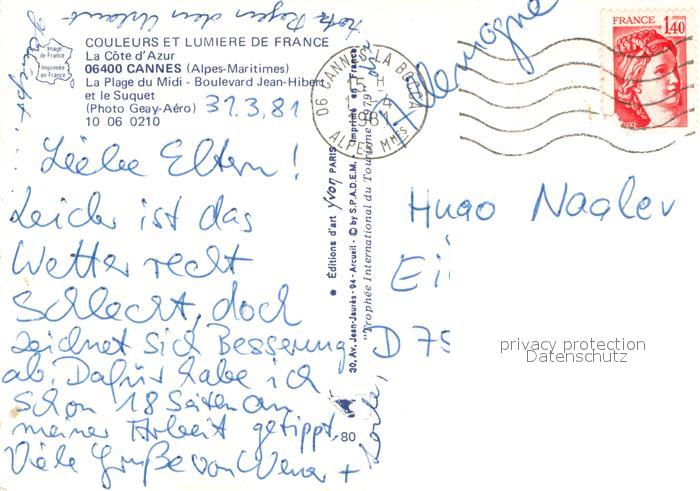 COULEURS ET LUMIERE DE FRANCE
La Côte d'Azur
06400 CANNES (Alpes-Maritimes)
La Plage du Midi - Boulevard Jean-Hibert
et le Suquet
(Photo Geay-Aéro)
10 06 0210
Image de France
Imprimée en France
31.3.81
Liebe Eltern!
Leider ist das
Wetter recht
schlecht, doch
zeichnet sich Besserung
ab. Dafür habe ich
schon 18 Seiten an
meiner Arbeit getippt.
Viele Grüße von Werner +
trotz Regen den Urlaub
06 CANNES LA BOCCA
ALPES MMES
Editions d'art Yvon PARIS
30, Av. Jean-Jaurès - 94 - Arcueil - © by S.P.A.D.E.M. Imprimé en France.
"Trophée International du Tourisme 1979"
80
Allemagne
FRANCE
1,40
Hugo Nagler
D 75
privacy protection
Datenschutz